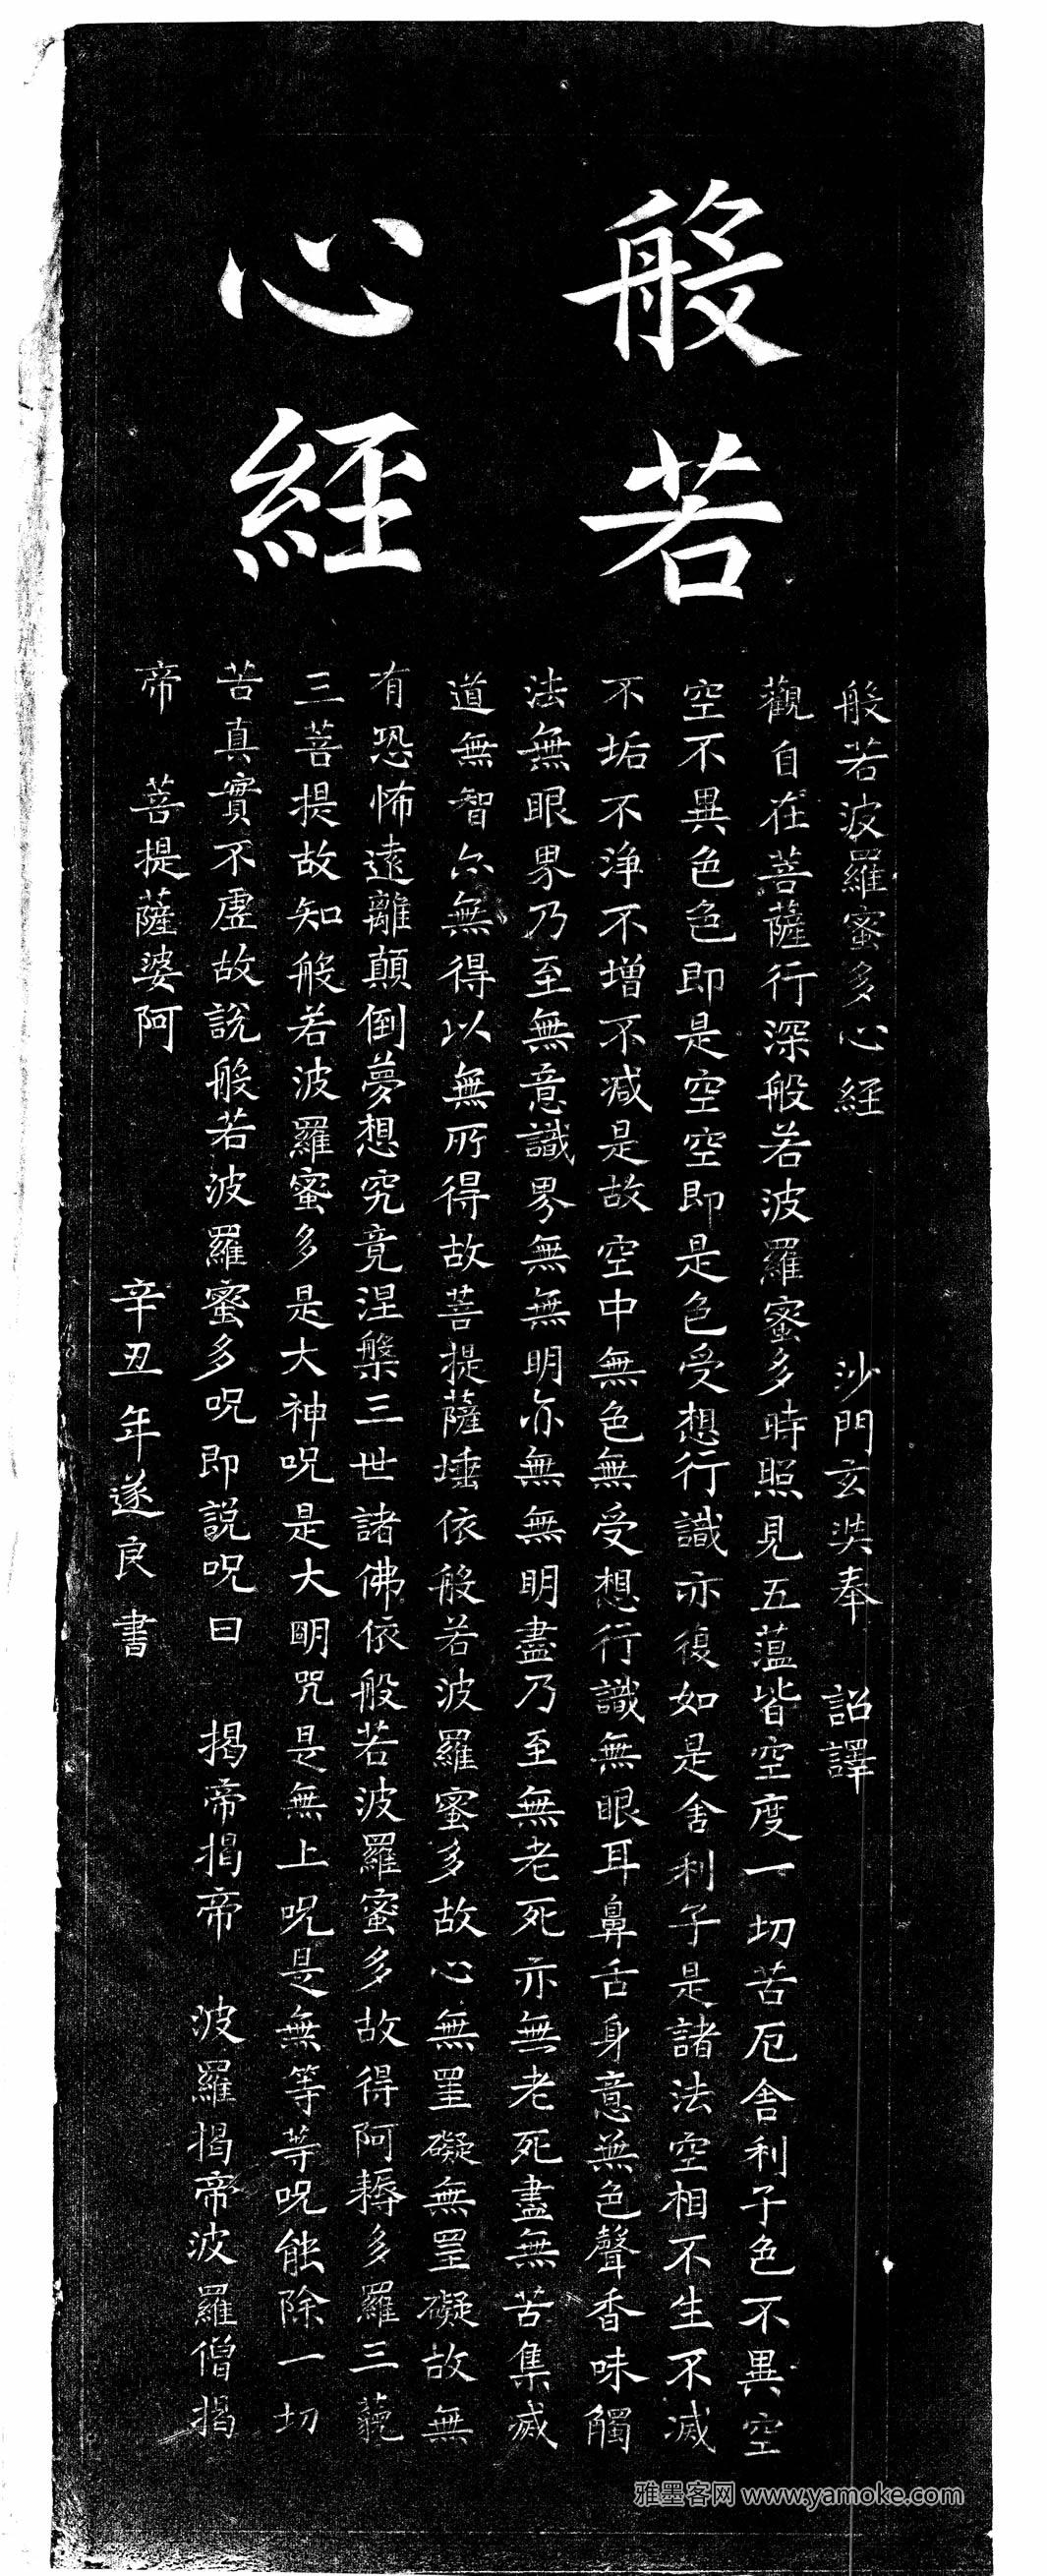 般若
心經
般若波羅蜜多心經 沙門玄奘奉 詔譯
觀自在菩薩行深般若波羅蜜多時照見五蕰皆空度一切苦厄舍利子色不異空
空不異色色即是空空即是色受想行識亦復如是舍利子是諸法空相不生不滅
不垢不淨不增不減是故空中無色無受想行識無眼耳鼻舌身意無色聲香味觸
法無眼界乃至無意識界無無明亦無無明盡乃至無老死亦無老死盡無苦集滅
道無智亦無得以無所得故菩提薩埵依般若波羅蜜多故心無罣礙無罣礙故無
有恐怖遠離顛倒夢想究竟涅槃三世諸佛依般若波羅蜜多故得阿耨多羅三藐
三菩提故知般若波羅蜜多是大神呪是大明咒是無上呪是無等等呪能除一切
苦真實不虛故說般若波羅蜜多呪即說呪曰 揭帝揭帝 波羅揭帝波羅僧揭
帝 菩提薩婆阿
辛丑年遂良書
雅墨客网 www.yamoke.com